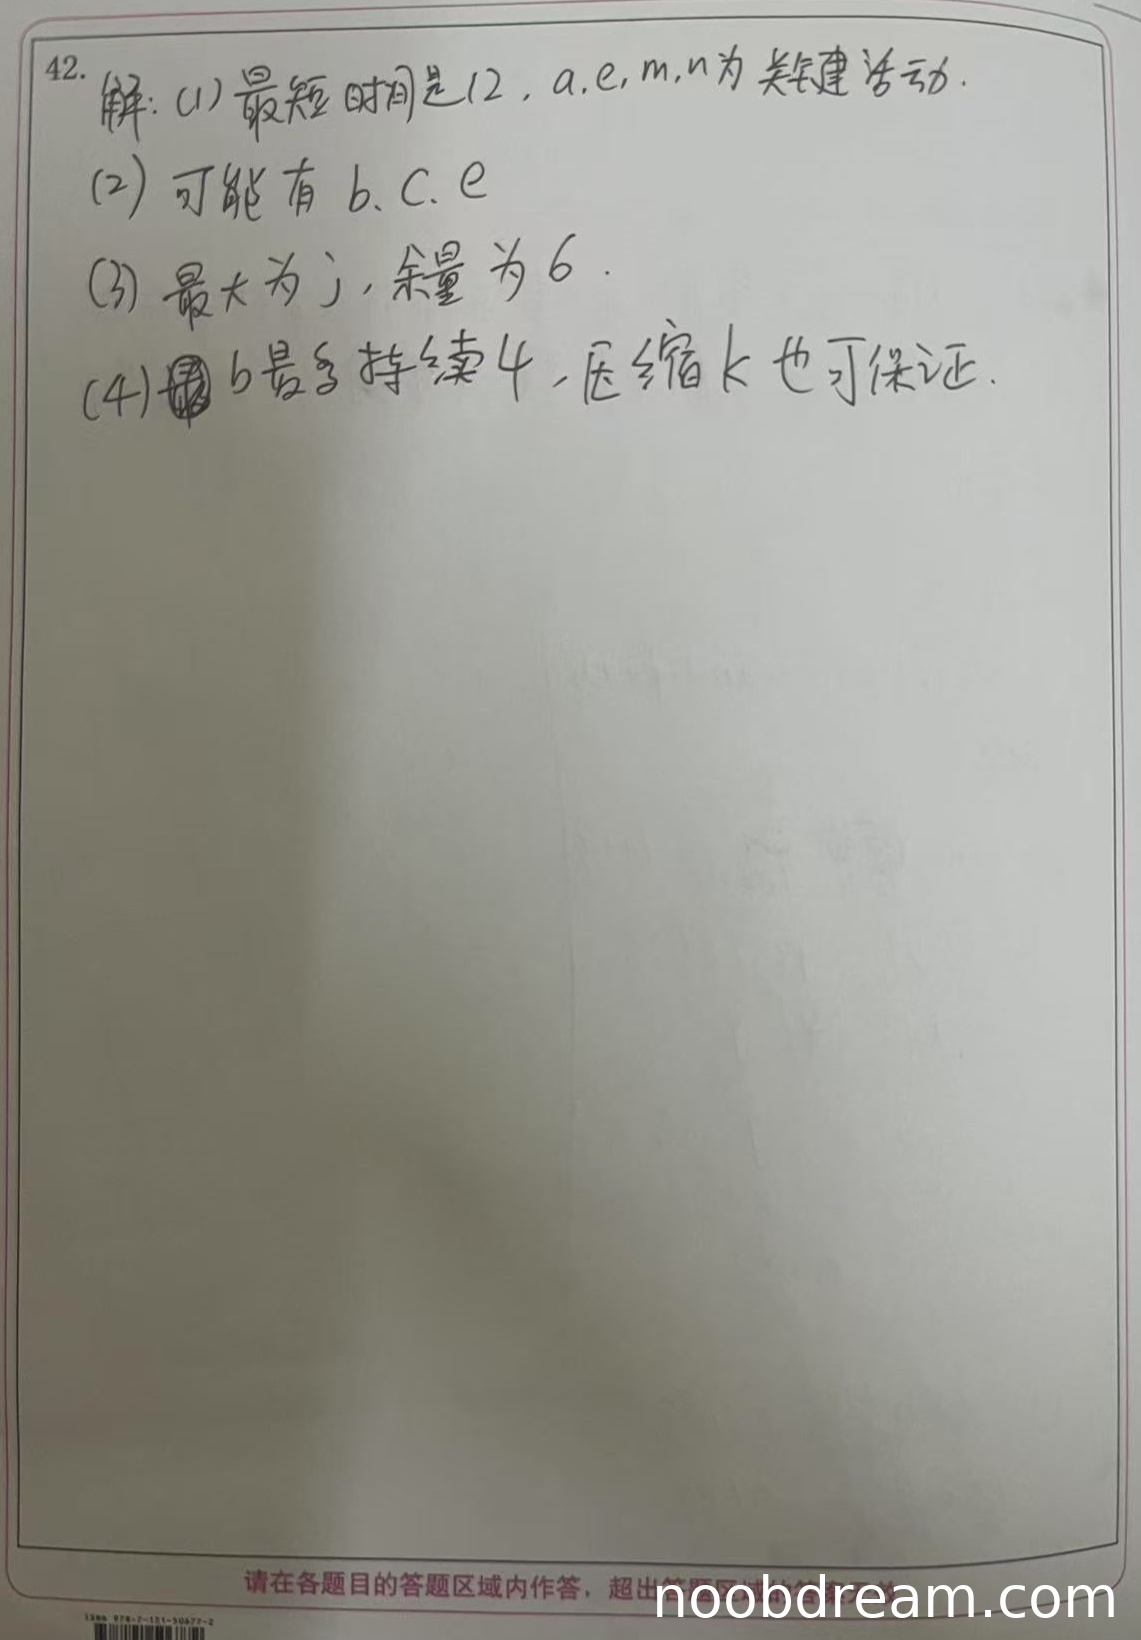 42.
解:(1)最短时间是12,a.e,m,n为关键活动.
(2)可能有 b、c、e
(3)最大为j,余量为6.
(4) b最多持续4,压缩k也可保证.
请在各题目的答题区域内作答,超出答题区域的答案无效
noobdream.com